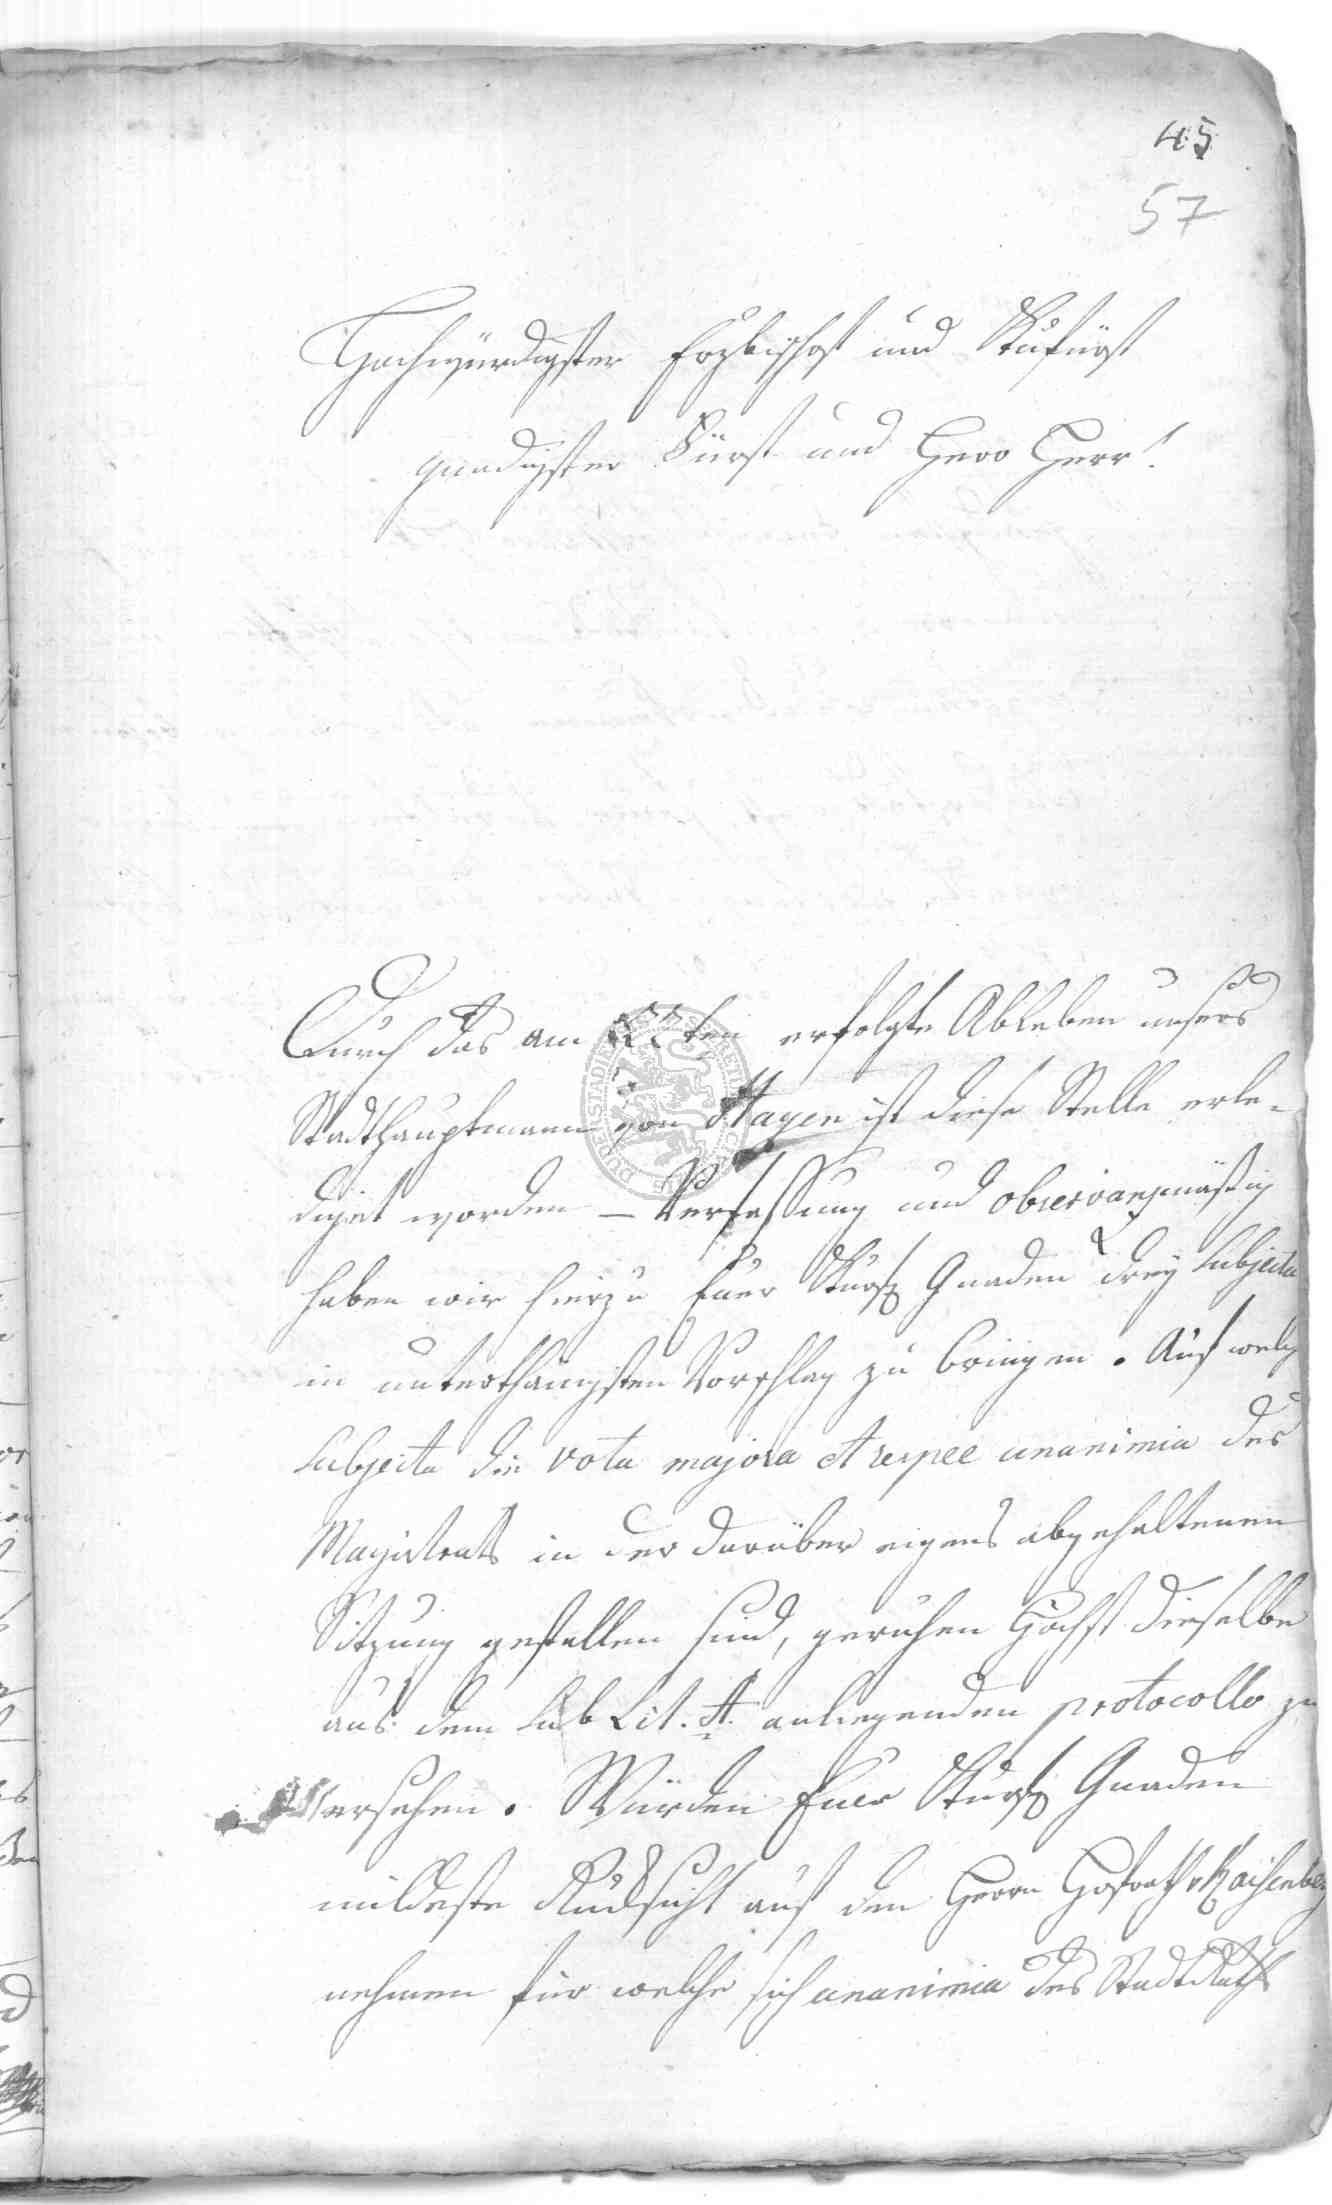 45
57
Hochwürdigster Erzbischof und Kurfürst
gnädigster Fürst und Herr Herr!
Durch das am 22ten erfolgte Ableben unsers
Stadthauptmann von Hagen ist diese Stelle erle-
diget worden – Verfassung und observanzmäßig
haben wir hierzu Euer Kurfl Gnaden drey Subjecta
in unterthänigsten Vorschlag zu bringen. Auf welch
Subjecta die vota majora et respee unanimia des
Magistrats in der darüber eigens abgehaltenen
Sitzung gefallen sind, geruhen Höchst dieselbe
aus dem sub Lit. A. anliegenden protocollo zu
ersehen. Würden Euer Kurfl Gnaden
mildeste Rücksicht auf den Herrn Hofrath v Kaisenberg
nehmen für welche sich unanimia des Stadt Raths